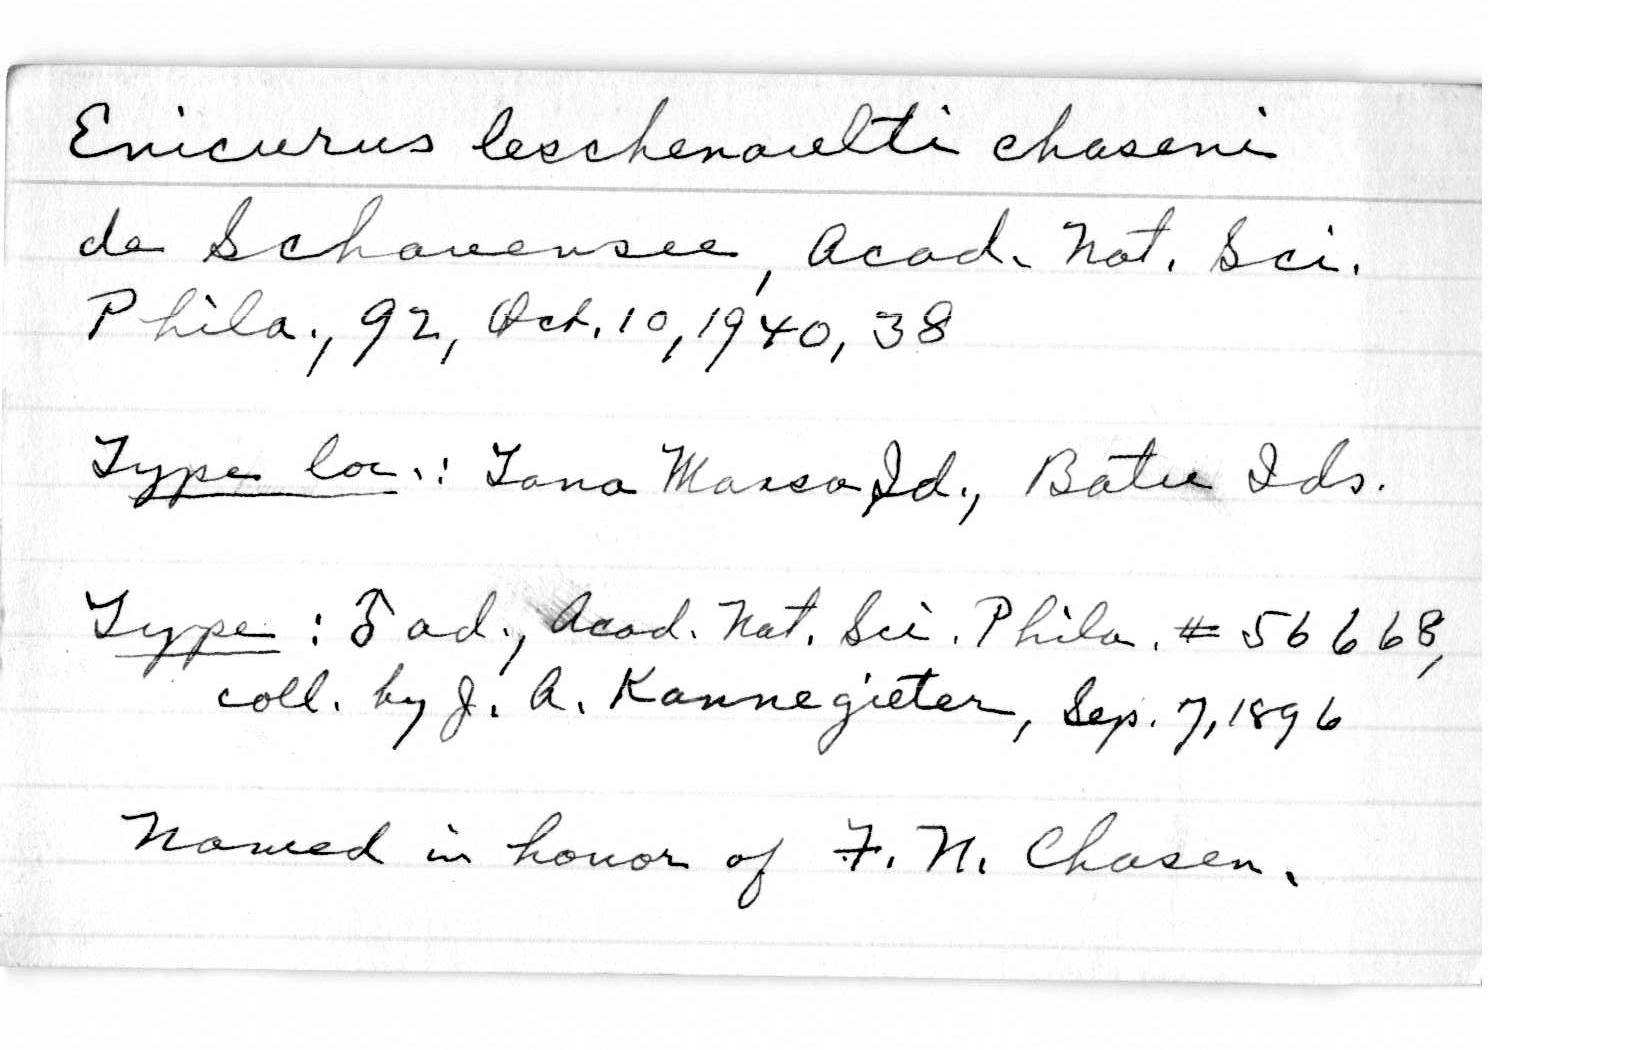 Enicurus leschenaulti chaseni
de Schauensee, Acad. Nat. Sci.
Phila., 92, Oct. 10, 1940, 38
Type loc.: Tana Massa Id., Batu Ids.
Type: ♂ ad., Acad. Nat. Sci. Phila. # 56668,
coll. by J. A. Kannegieter, Sep. 7, 1896
Named in honor of F. N. Chasen.